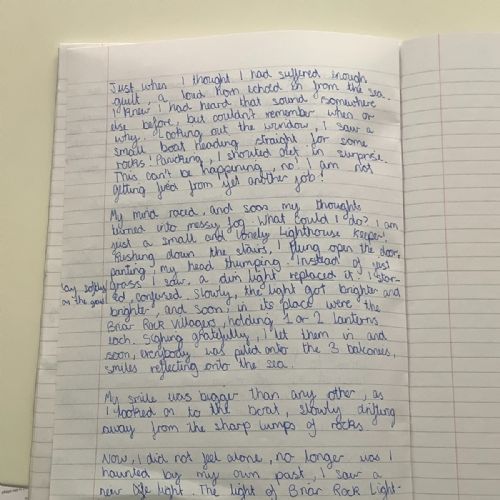 Just when I thought I had suffered enough
guilt, a loud horn echoed in from the sea.
I knew I had heard that sound somewhere
else before, but couldn't remember when or
why. Looking out the window, I saw a
small boat heading straight for some
rocks! Panicking, I shouted out in surprise.
This can't be happening, no! I am not
getting fired from yet another job!
My mind raced, and soon my thoughts
turned into messy fog. What could I do? I am
just a small and lonely lighthouse keeper!
Rushing down the stairs, I flung open the door,
panting, my head thumping. Instead of just
grass I saw, a dim light replaced it. I star-
lay softly
on the
ed, confused. Slowly, the light got brighter and
brighter, and soon, in its place were the
Briar Rock villagers, holding 1 or 2 lanterns
each. Sighing gratefully, I let them in and
soon, everybody was piled onto the 3 balconies,
smiles reflecting onto the sea.
My smile was bigger than any other, as
I looked on to the boat, slowly drifting
away from the sharp lumps of rocks.
Now, I did not feel alone, no longer was I
haunted by my own past. I saw a
new life light. The light of Briar Rock Light-